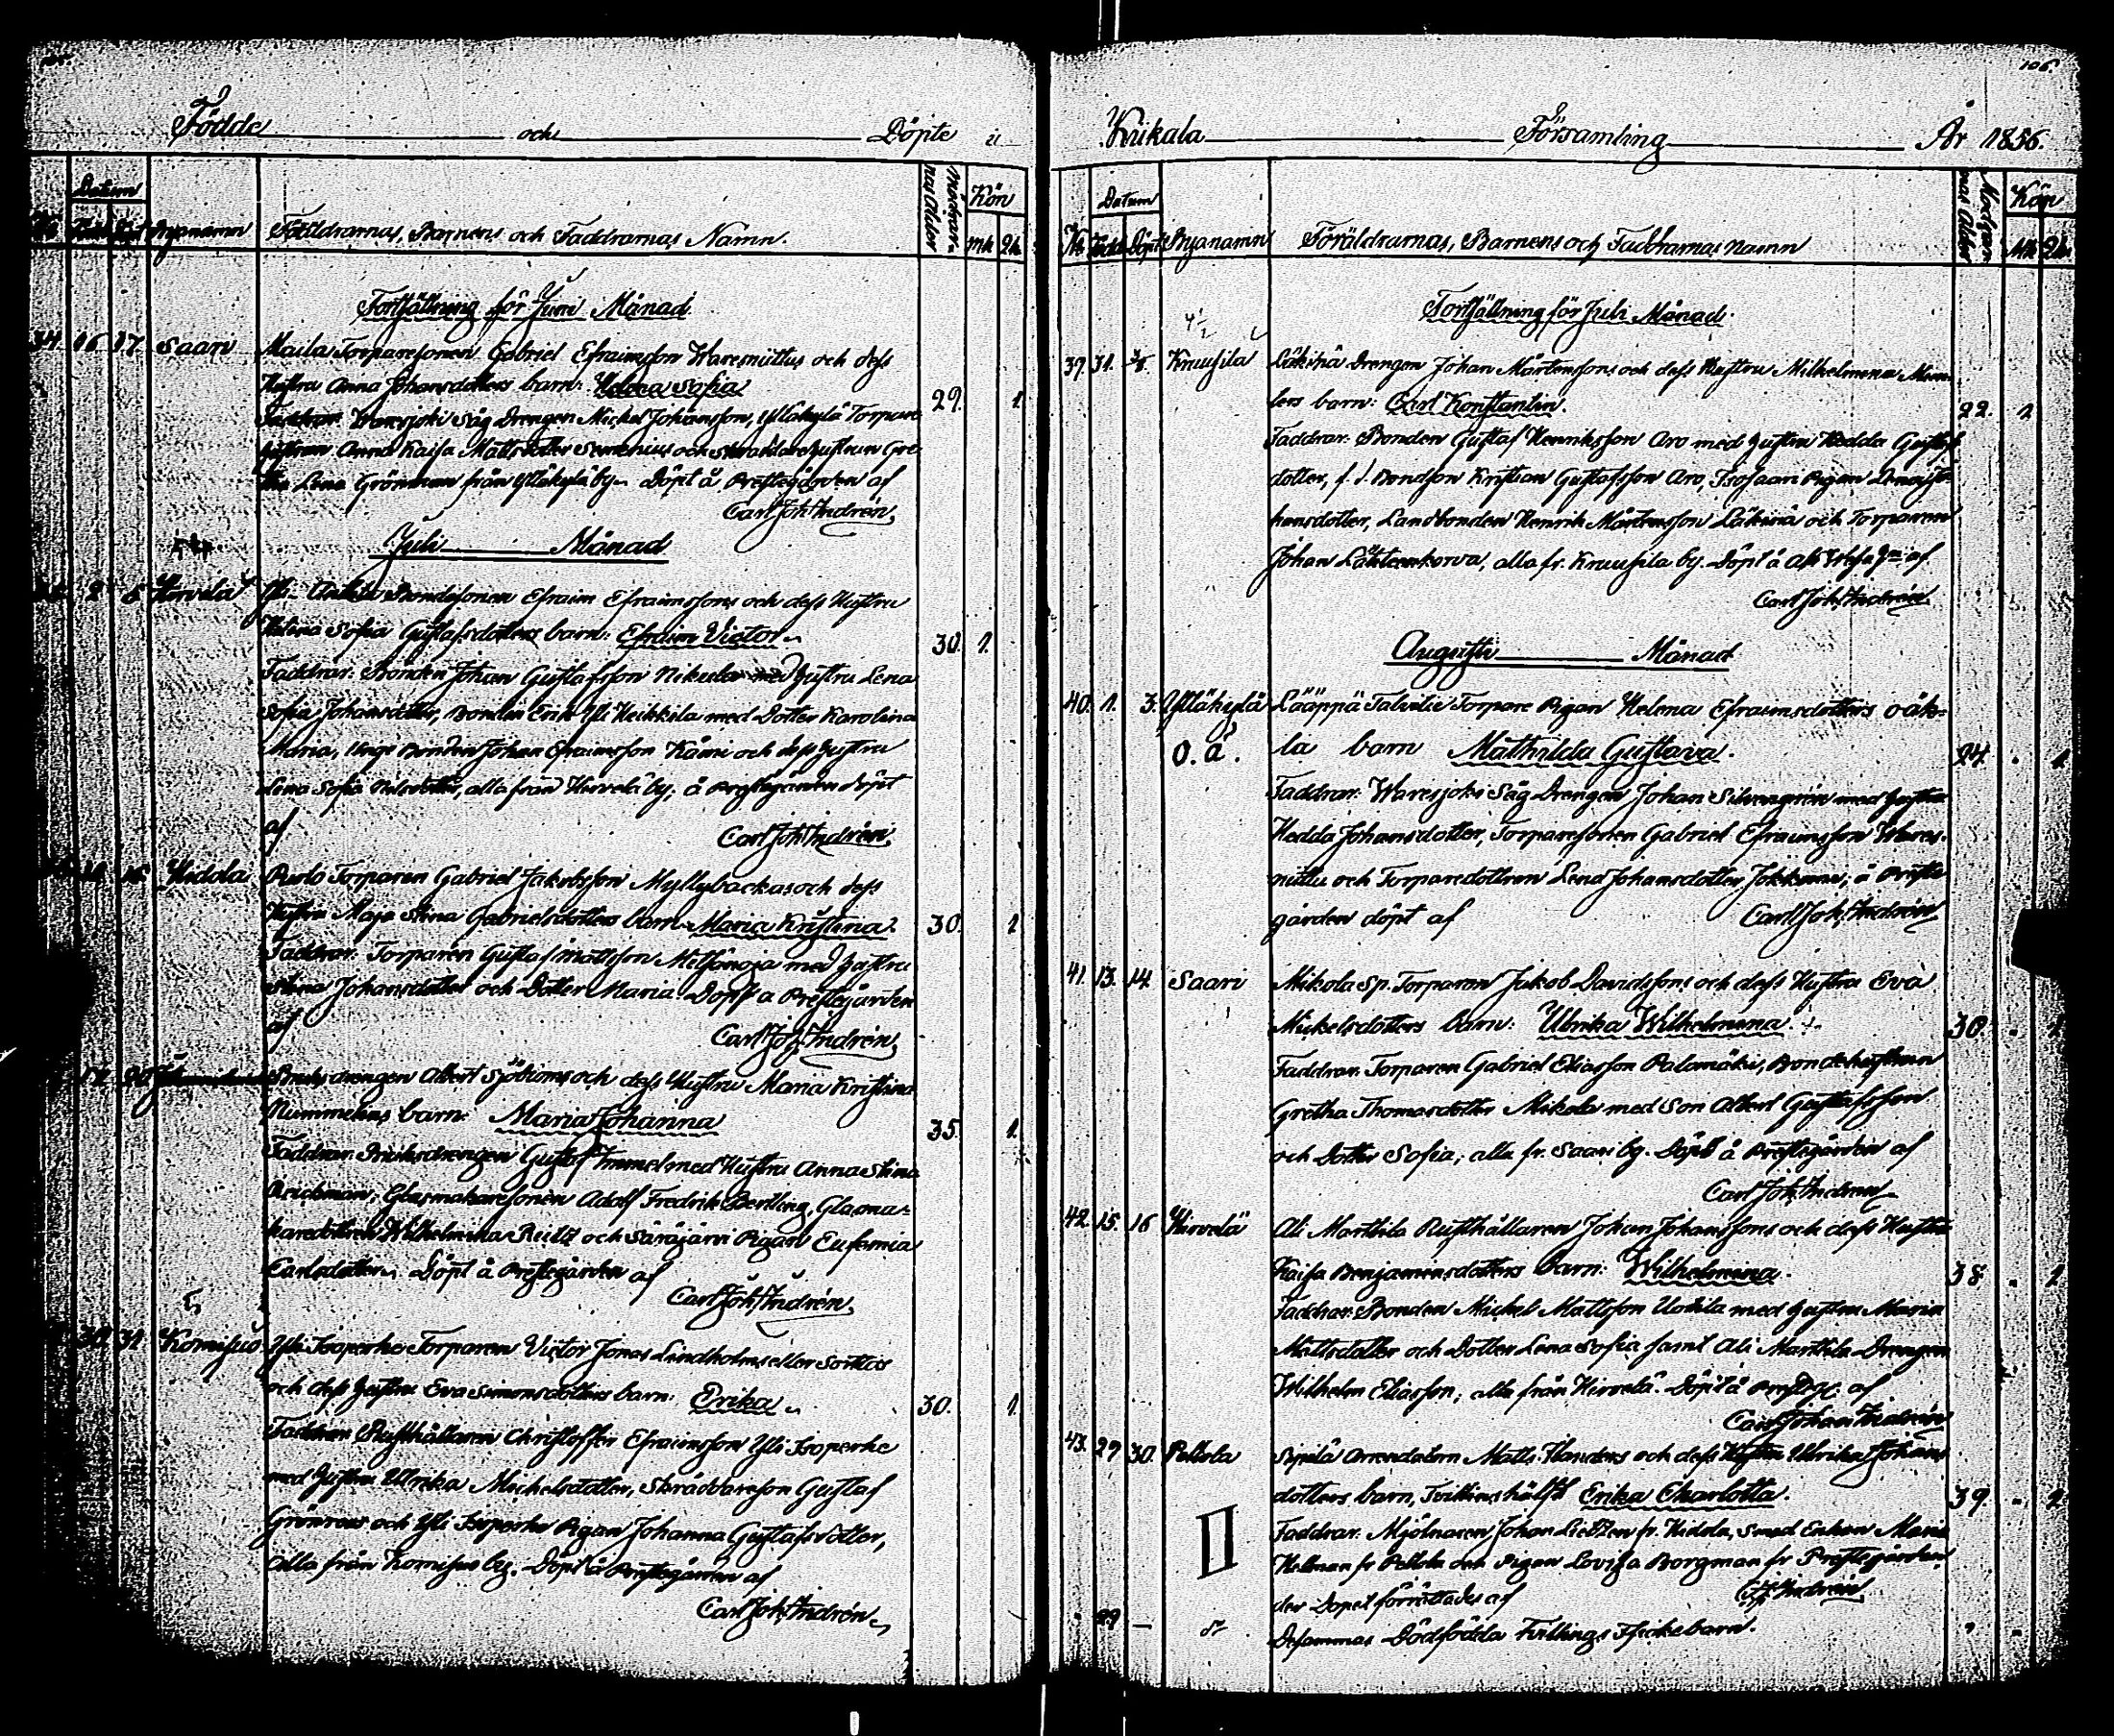 Födde och Döpte i
Datum
Byanamn Föräldrarnas, Barnens och Faddrarnas Namn. Mödrarnas Ålder Kön mk qk
Fortsättning för Juni Månad
34 16 17 Saari Maila Torparesonen Gabriel Efraimsson Waresnittus och dess
Hustru Anna Johansdotters barn: Helena Sofia 29. 1.
Faddrar: Waresjoki Såg Drengen Michel Johansson, Yltäkylä Torpare
hustrun Anna Kaisa Mattsdotter och Skräddarehustrun Gre
tha Lena Grönman från Yltäkylä by. Döpt å Prestegården af
Carl Joh. Andrén
Juli Månad
2 5 Hirvelä Yli Bondesonen Efraim Efraimssons och dess Hustru
Helena Sofia Gustafsdotters barn: Efraim Victor 30. 1.
Faddrar: Bonden Johan Gustafsson Nikula med hustru Lena
Sofia Johansdotter, Bonden Erik Yli Heikkila med Dotter Karolina
Maria, Unge Bonden Johan Efraimsson och dess hustru
Lena Sofia Nilsdotter, alla från Hirvelä by; å Prestegården döpt
af Carl Joh. Andrén
Hidola Torparen Gabriel Jakobsson Myllybackas och dess
Hustru Maja Stina Gabrielsdotters barn Maria Kristina. 30. 1
Faddrar: Torparen Gustaf Mattsson Metsänoja med hustru
Stina Johansdotter och Dotter Maria. Döpt å Prestegården
af Carl Joh. Andrén
17 20 Bruksdrengen Albert Sjöbloms och dess Hustru Maria Kristina
Nummelins barn: Maria Johanna 35. 1.
Faddrar: Bruksdrengen Gustaf Immel med Hustru Anna Stina
Glasmakaresonen Adolf Fredrik Bertling, Glasma-
karedottren Wilhelmina Reitz och Säräjärvi Pigan Eufemia
Carlsdotter. Döpt å Prestegården af
Carl Joh. Andrén
30 31 Komisuo Yli Isoperhe Torparen Victor Jonas Lindholms eller
och dess hustru Eva Simonsdotters barn: Erika 30. 1.
Faddrar: Rusthållaren Christoffer Efraimsson Yli Isoperhe
med hustru Ulrika Michelsdotter, Skräddareson Gustaf
Grönroos och Yli Isoperhe Pigan Johanna Gustafsdotter,
alla från Komisuo by. Döpt å Prestegården af
Carl Joh. Andrén
106.
Kiikala Församling År 1856.
Datum
No Född Döpt Byanamn Föräldrarnas, Barnens och Faddrarnas Namn Mödrarnas Ålder Kön Mk Qk
Fortsättning för Juli Månad.
39. 31. Kruusila Läkiniä Drengen Johan Mårtenssons och dess Hustru Wilhelmina
lers barn: Carl Konstantin. 22. 1
Faddrar: Bonden Gustaf Henriksson Aro med hustru Hedda Gustafs
dotter, f. d. Bondson Kristian Gustafsson Aro, Isosaari Pigan Lena Jo-
hansdotter, Landbonden Henrik Mårtensson Läkiniä och Torparen
Johan Lähteenkorva, alla fr. Kruusila by. Döpt å af
Carl Joh. Andrén
Augusti Månad
40. 1. 3. Yltäkylä Lääppä Torpare Pigan Helena Efraimsdotters oäk-
O. ä. ta barn Mathilda Gustava. 24. 1
Faddrar: Waresjoki Såg Drengen Johan Silvengrén med hustru
Hedda Johansdotter, Torparesonen Gabriel Efraimsson Wares-
nittu och Torparedottren Lena Johansdotter, å Preste
gården döpt af Carl Joh. Andrén
41. 13. 14. Saari Mikola Sp. Torparen Jakob Davidssons och dess Hustru Eva
Mickelsdotters barn: Ulrika Wilhelmina. 30. 1
Faddrar: Torparen Gabriel Eliasson Palamäki, Bondehustrun
Gretha Thomasdotter Mikola med Son Albert Gustafsson
och Dotter Sofia; alla fr. Saari by. Döpt å Prestegården af
Carl Joh. Andrén
42. 15. 16 Hirvelä Ali Marttila Rusthållaren Johan Johanssons och dess Hustru
Kaisa Benjaminsdotters barn: Wilhelmina. 38. 1
Faddrar: Bonden Mickel Mattsson Uotila med hustru Maria
Mattsdotter och Dotter Lena Sofia samt Ali Marttila Drengen
Wilhelm Eliasson; alla från Hirvelä. Döpt å Presteg: af
Carl Johan Andrén
43. 29 30. Peltola Sipilä Arrendatorn Matts Flanders och dess Hustru Ulrika Johans
dotters barn, Tvillinghälft Erika Charlotta. 39. 1
Faddrar: Mjölnaren Johan Lietzen fr. Hidola, Smed Enkan Maria
Hellman fr. Peltola och Pigan Lovisa Borgman fr Prestegården
der Dopet förrättades af C. J. Andrén
29 — Desammas Dödfödda Tvillings Flickebarn.